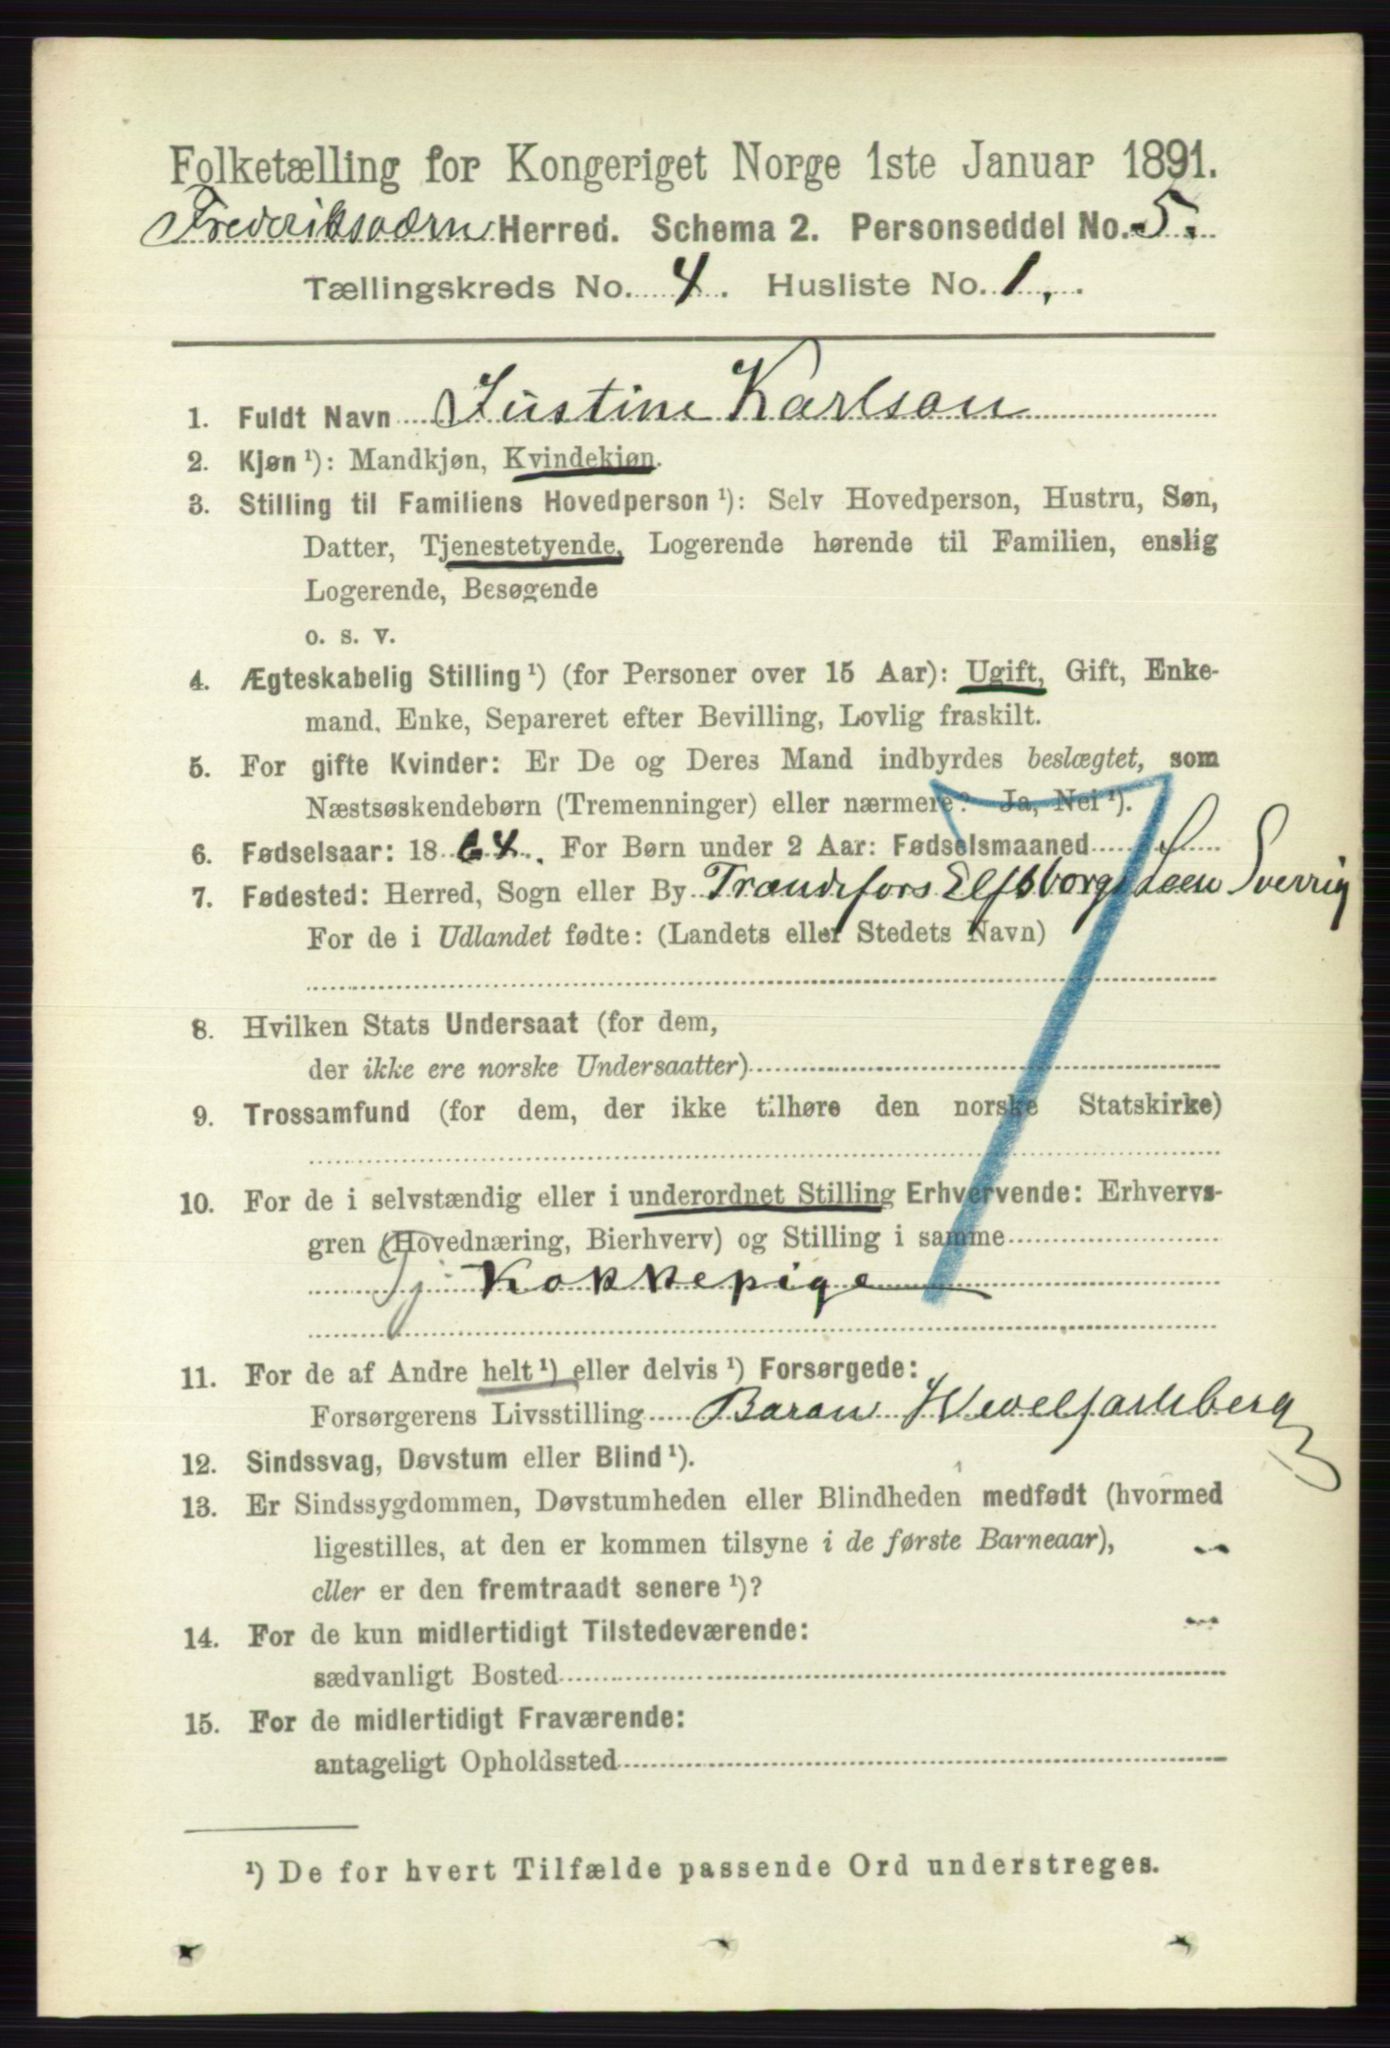 Folketælling for Kongeriget Norge 1ste Januar 1891.
Frederiksværn Herred. Schema 2. Personseddel No. 5.
Tællingskreds No. 4. Husliste No. 1.
1. Fuldt Navn Justine Karlson
2. Kjøn ¹): Mandkjøn, Kvindekjøn.
3. Stilling til Familiens Hovedperson ¹): Selv Hovedperson, Hustru, Søn,
Datter, Tjenestetyende, Logerende hørende til Familien, enslig
Logerende, Besøgende
o. s. v.
4. Ægteskabelig Stilling ¹) (for Personer over 15 Aar): Ugift, Gift, Enke-
mand, Enke, Separeret efter Bevilling, Lovlig fraskilt.
5. For gifte Kvinder: Er De og Deres Mand indbyrdes beslægtet, som
Næstsøskendebørn (Tremenninger) eller nærmere? Ja, Nei ¹).
6. Fødselsaar: 1864. For Børn under 2 Aar: Fødselsmaaned
7. Fødested: Herred, Sogn eller By Trandefors Elfsborgs Leen Sverrig
For de i Udlandet fødte: (Landets eller Stedets Navn)
8. Hvilken Stats Undersaat (for dem,
der ikke ere norske Undersaatter)
9. Trossamfund (for dem, der ikke tilhøre den norske Statskirke)
10. For de i selvstændig eller i underordnet Stilling Erhvervende: Erhvervs-
gren (Hovednæring, Bierhverv) og Stilling i samme
Tj. Kokkepige
11. For de af Andre helt ¹) eller delvis ¹) Forsørgede:
Forsørgerens Livsstilling Baron Wedel Jarlsberg
12. Sindssvag, Døvstum eller Blind ¹).
13. Er Sindssygdommen, Døvstumheden eller Blindheden medfødt (hvormed
ligestilles, at den er kommen tilsyne i de første Barneaar),
eller er den fremtraadt senere ¹)?
14. For de kun midlertidigt Tilstedeværende:
sædvanligt Bosted
15. For de midlertidigt Fraværende:
antageligt Opholdssted
¹) De for hvert Tilfælde passende Ord understreges.